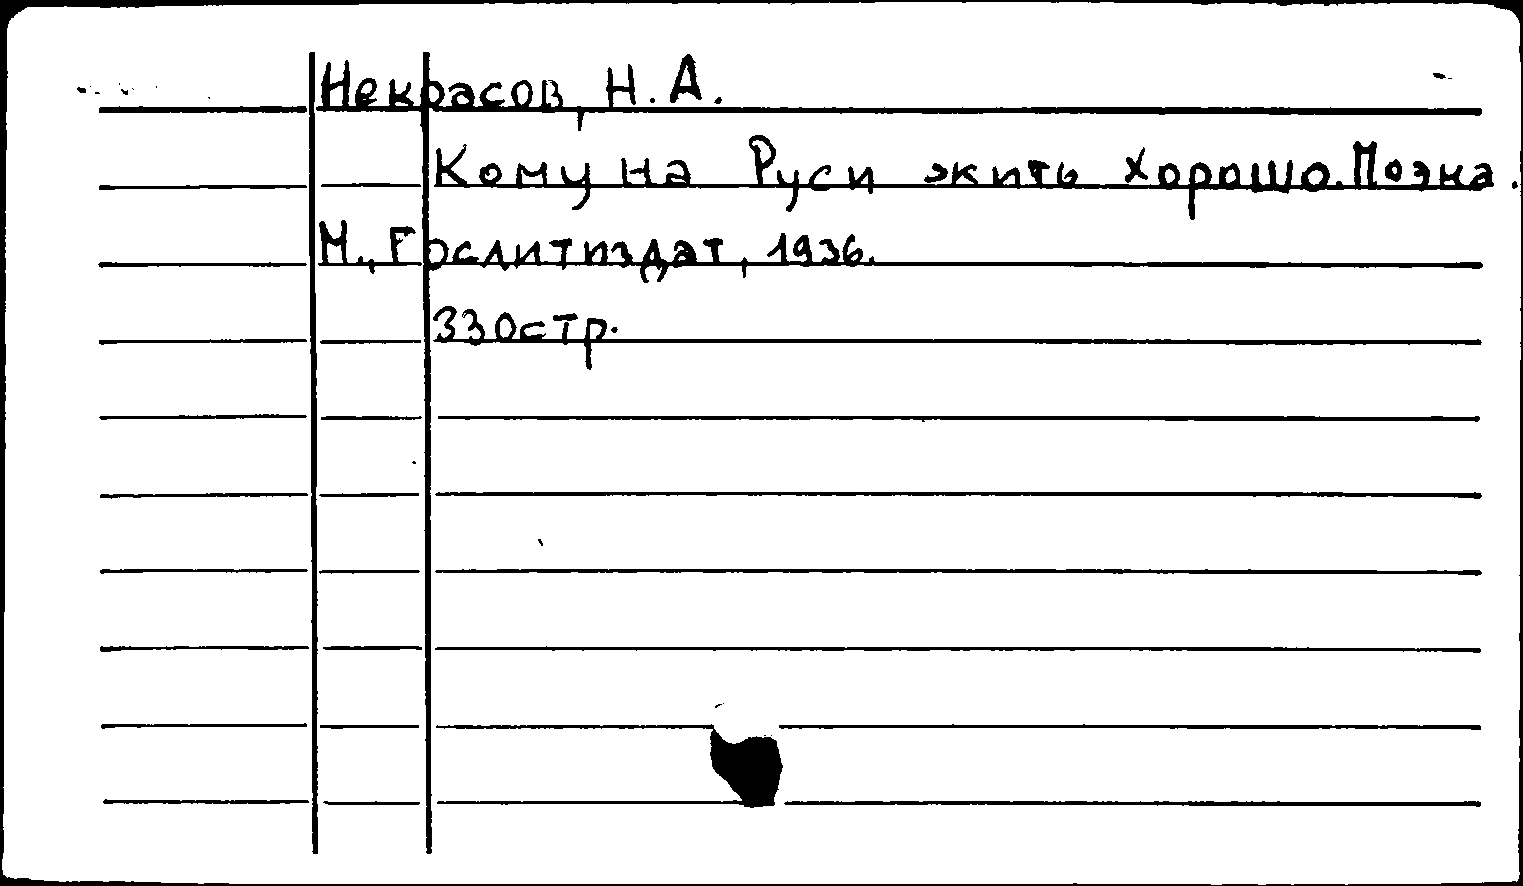 Некрасов, Н. А.
Кому на Руси жить хорошо. Поэма.
М., Гослитиздат, 1936.
330стр.